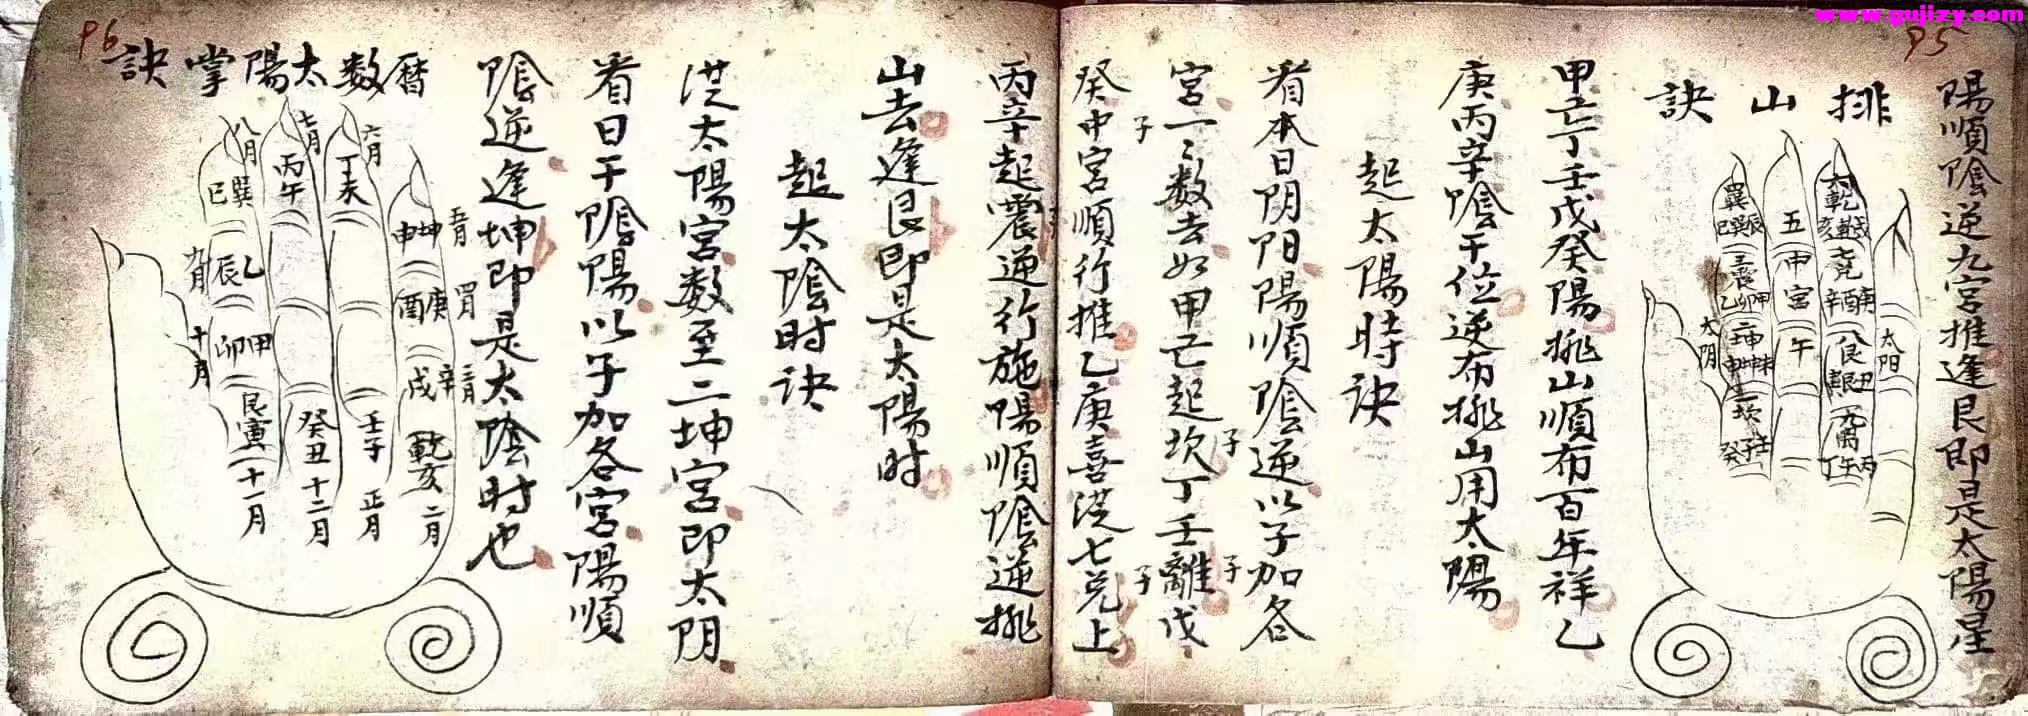 www.gujizy.com
P5
陽順陰逆九宮推逢艮即是太陽星
排山訣
六乾
戌
亥
七兌
庚
酉
辛
八艮
丑
九离
丙
午
丁
五中宮
午
巽
辰
巳
三震
甲
卯
乙
二坤
未
申
一坎
壬
子
癸
太阳
太阴
甲己丁壬戊癸陽排山順布百年祥乙
庚丙辛陰干位逆布排山用太陽
起太陽時訣
看本日阴阳陽順陰逆以子加各
宮一二数去如甲己起坎丁壬離戊
子
子
癸中宮順行推乙庚喜从七兌上
子
子
丙辛起震逆行施陽順陰逆排
山去逢艮即是太陽时
起太陰时訣
从太陽宮数至二坤宮即太阴
看日干陰陽以子加各宮陽順
陰逆逢坤即是太陰时也
P6
曆数太陽掌訣
六月
丁未
七月
丙午
八月
巽
巳
五月
坤
申
四月
庚
酉
三月
辛
戌
乾亥
二月
壬子
正月
癸丑
十二月
艮寅
十一月
甲
卯
十月
乙
辰
九月